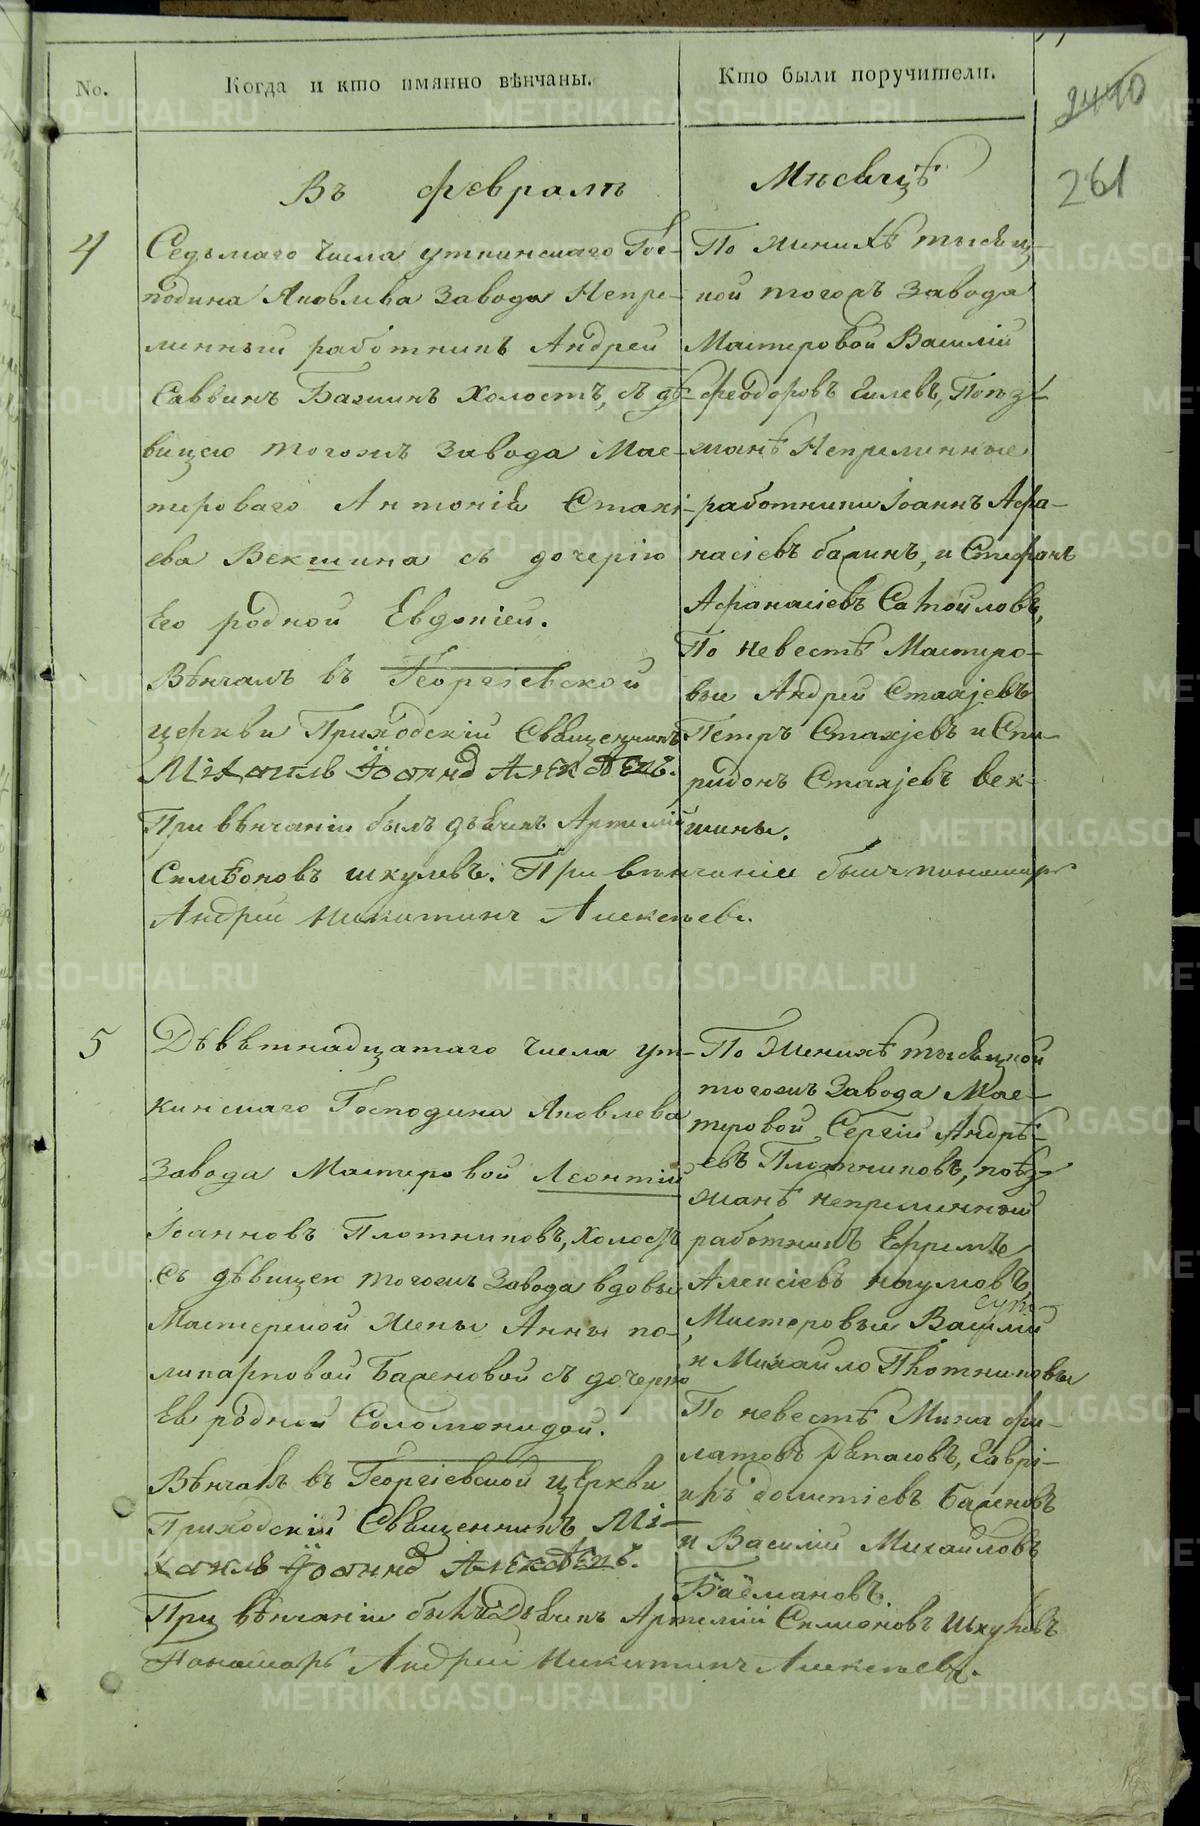 No.
Когда и кто имянно вѣнчаны.
Кто были поручители.
2440
261
Въ февралѣ
Мѣсяцѣ
4
Седьмаго числа уткинскаго Гос-
подина Яковлева завода Непре-
менный работникъ Андрей
Саввинъ холостъ, съ дѣ-
вицею тогожъ завода Мас-
тероваго Антонія Стахі-
ева Векшина съ дочерію
Его родной Евдокіей.
Вѣнчалъ въ Георгіевской
церкви Приходскій Священникъ
Михаилъ Іоаннъ Алексѣевъ.
При вѣнчаніи былъ дьячикъ Артемій
Симеоновъ шкулевъ. При вѣнчаніе былъ пономарь
Андрей Никитинъ Алексѣевъ.
По женихѣ тысяц-
кой тогожъ завода
Мастеровой Василій
Феодоровъ Гилевъ, Поѣз-
жанѣ Непременные
работники Іоаннъ Афа-
насіевъ и Стефанъ
Афанасіевъ Самойловъ,
По невестѣ Мастеро-
вые Андрей Стахіевъ
Петръ Стахіевъ и Спи-
ридонъ Стахіевъ век-
шины.
5
Девятнадцатаго числа ут-
кинскаго Господина Яковлева
завода Мастеровой Леонтій
Іоанновъ Плотниковъ, холостъ
съ дѣвицею тогожъ завода вдовы
Мастерской жены Анны по-
ликарповой Баженовой съ дочерью
Ея родной Соломонидой.
Вѣнчалъ въ Георгіевской церкви
Приходскій Священникъ Ми-
хаилъ Іоаннъ Алексѣевъ.
При вѣнчаніи былъ Дьячикъ Артемій Симеоновъ Шкулевъ
Пономарь Андрей Никитинъ Алексѣевъ.
По Женихѣ тысяцкой
тогожъ завода Мас-
теровой Сергій Андрѣ-
евъ Плотниковъ, поѣз-
жанѣ непременный
работникъ Ефремъ
Алексіевъ наумовъ
Мастеровые Василій
и Михайло Плотниковы
По невестѣ Мина фи-
латовъ Гаврі-
илъ Баженовъ
и Василій Михайловъ